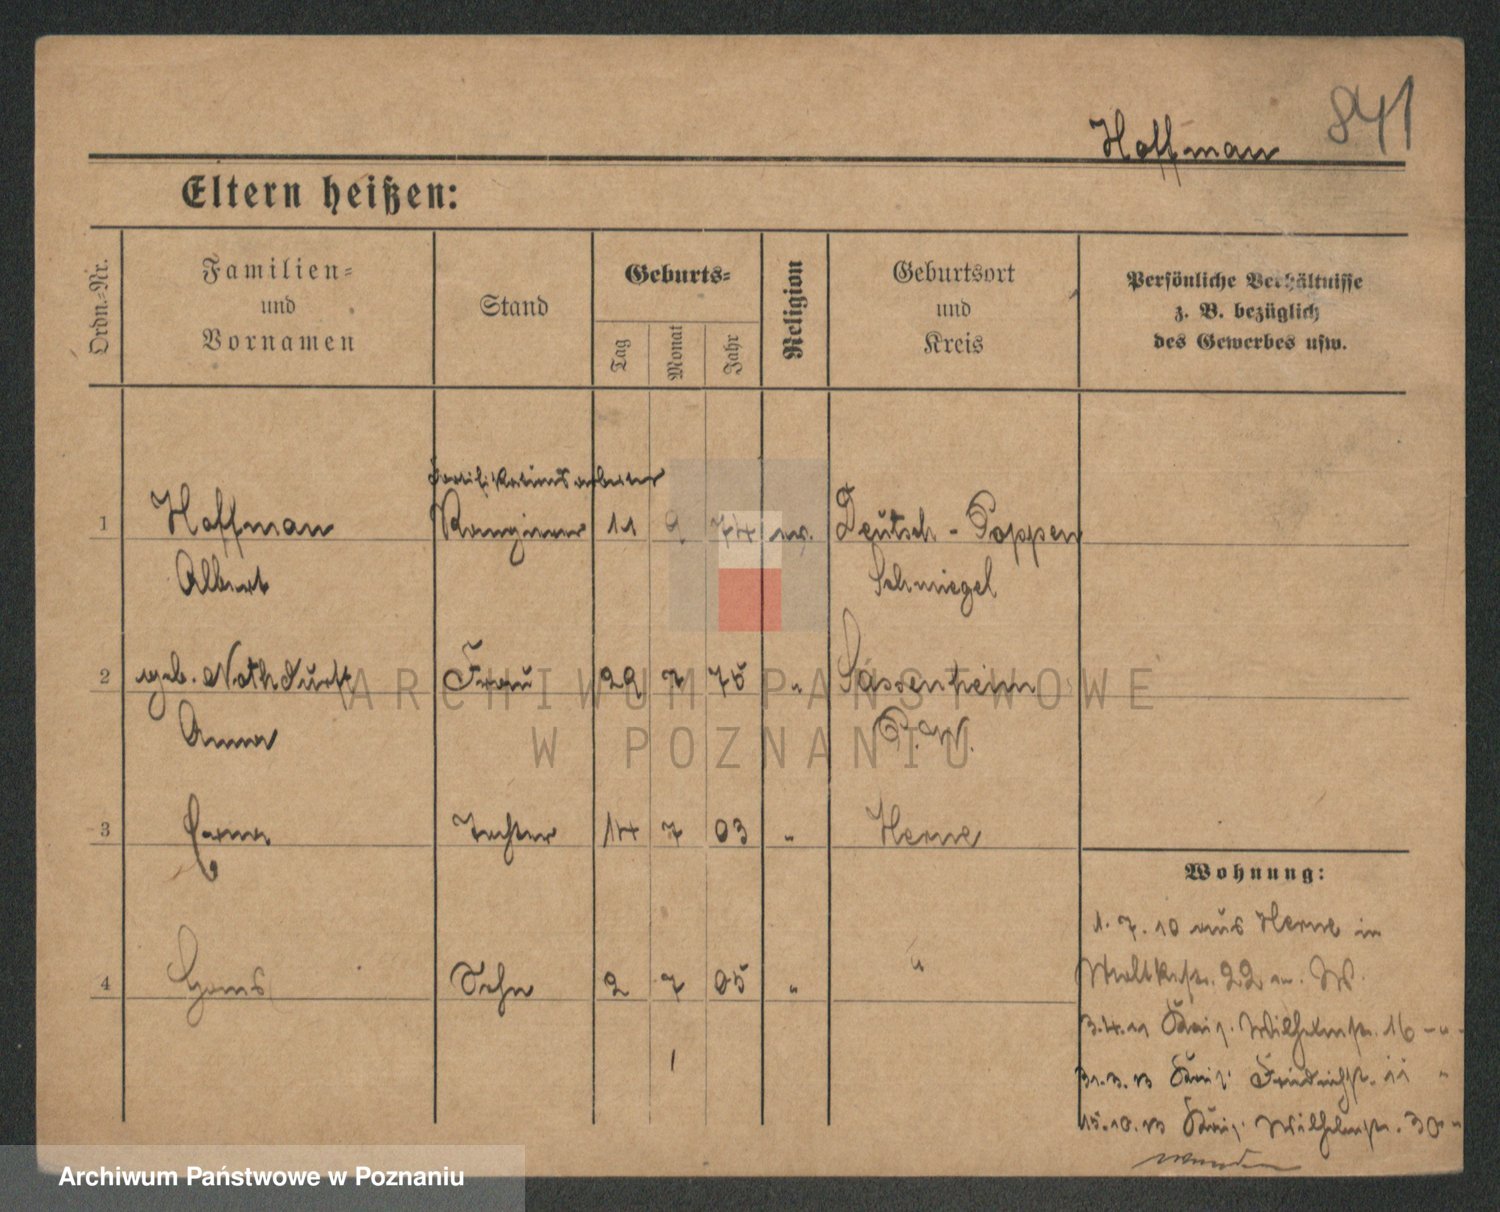 841
Hoffman
Eltern heißen:
Ordn.-Nr.
Familien-
und
Vornamen
Stand
Geburts-
Tag
Monat
Jahr
Religion
Geburtsort
und
Kreis
Persönliche Verhältnisse
z. B. bezüglich
des Gewerbes usw.
Fortifikationsarbeiter
1 Hoffman Rangierer 11 9. 74 ev. Deutsch-Poppen
Albert Schmiegel
2 geb. Nothdurft Frau 29 7 75 " Sassenheim
Anna P. W.
3 Erna Tochter 14 7 03 " Herne
Wohnung:
1. 7. 10 aus Herne in
4 Hans Sohn 2 7 05 " "
Moltkestr. 22 W.
3.4.11 Wilhelmstr. 16 - " -
31.3.13 Friedrichstr. 11 "
15.10.13 Wilhelmstr. 30 "
ARCHIWUM PAŃSTWOWE
W POZNANIU
Archiwum Państwowe w Poznaniu